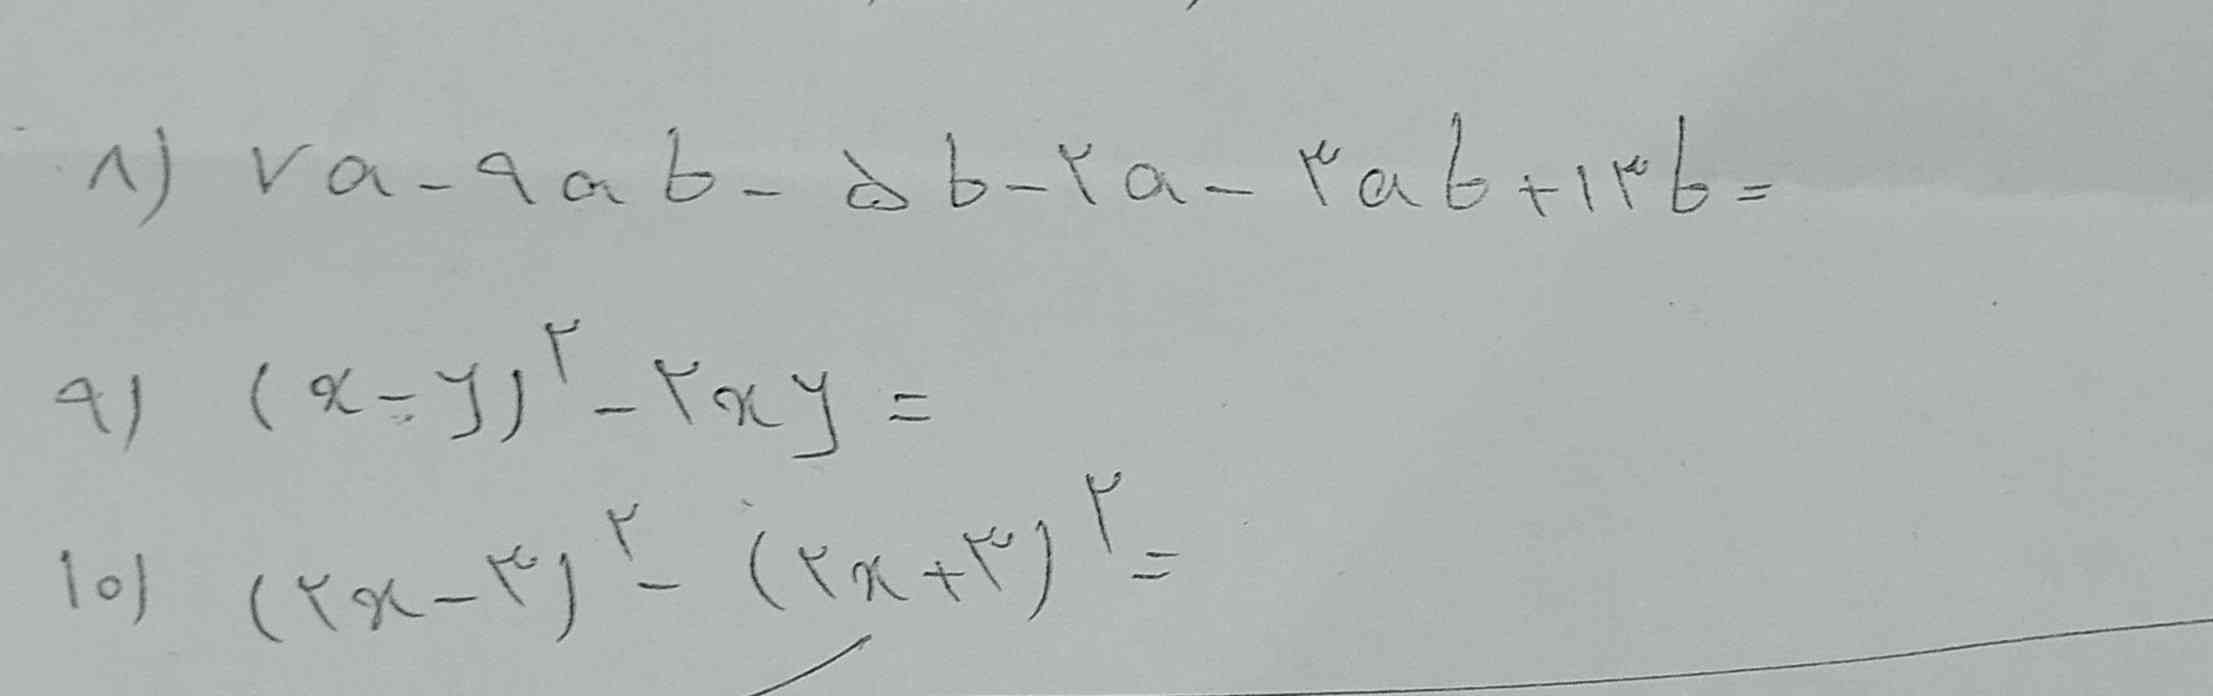 ۸) ۷a-۹ab-۵b-۲a-۳ab+۱۳b=
۹) (x-y)^۲-۲xy=
۱۰) (۲x-۳)^۲-(۲x+۳)^۲=